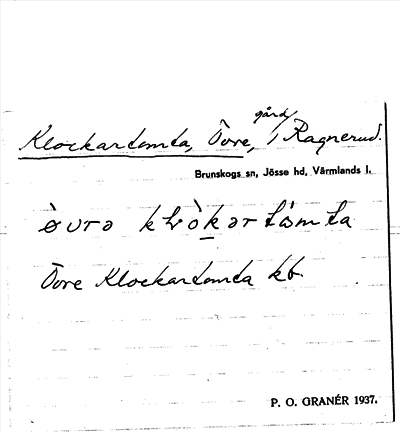 Klockartomta, Övre, gård i Ragnerud.
Brunskogs sn, Jösse hd, Värmlands l.
Övre Klockartomta kb.
P. O. GRANÉR 1937.